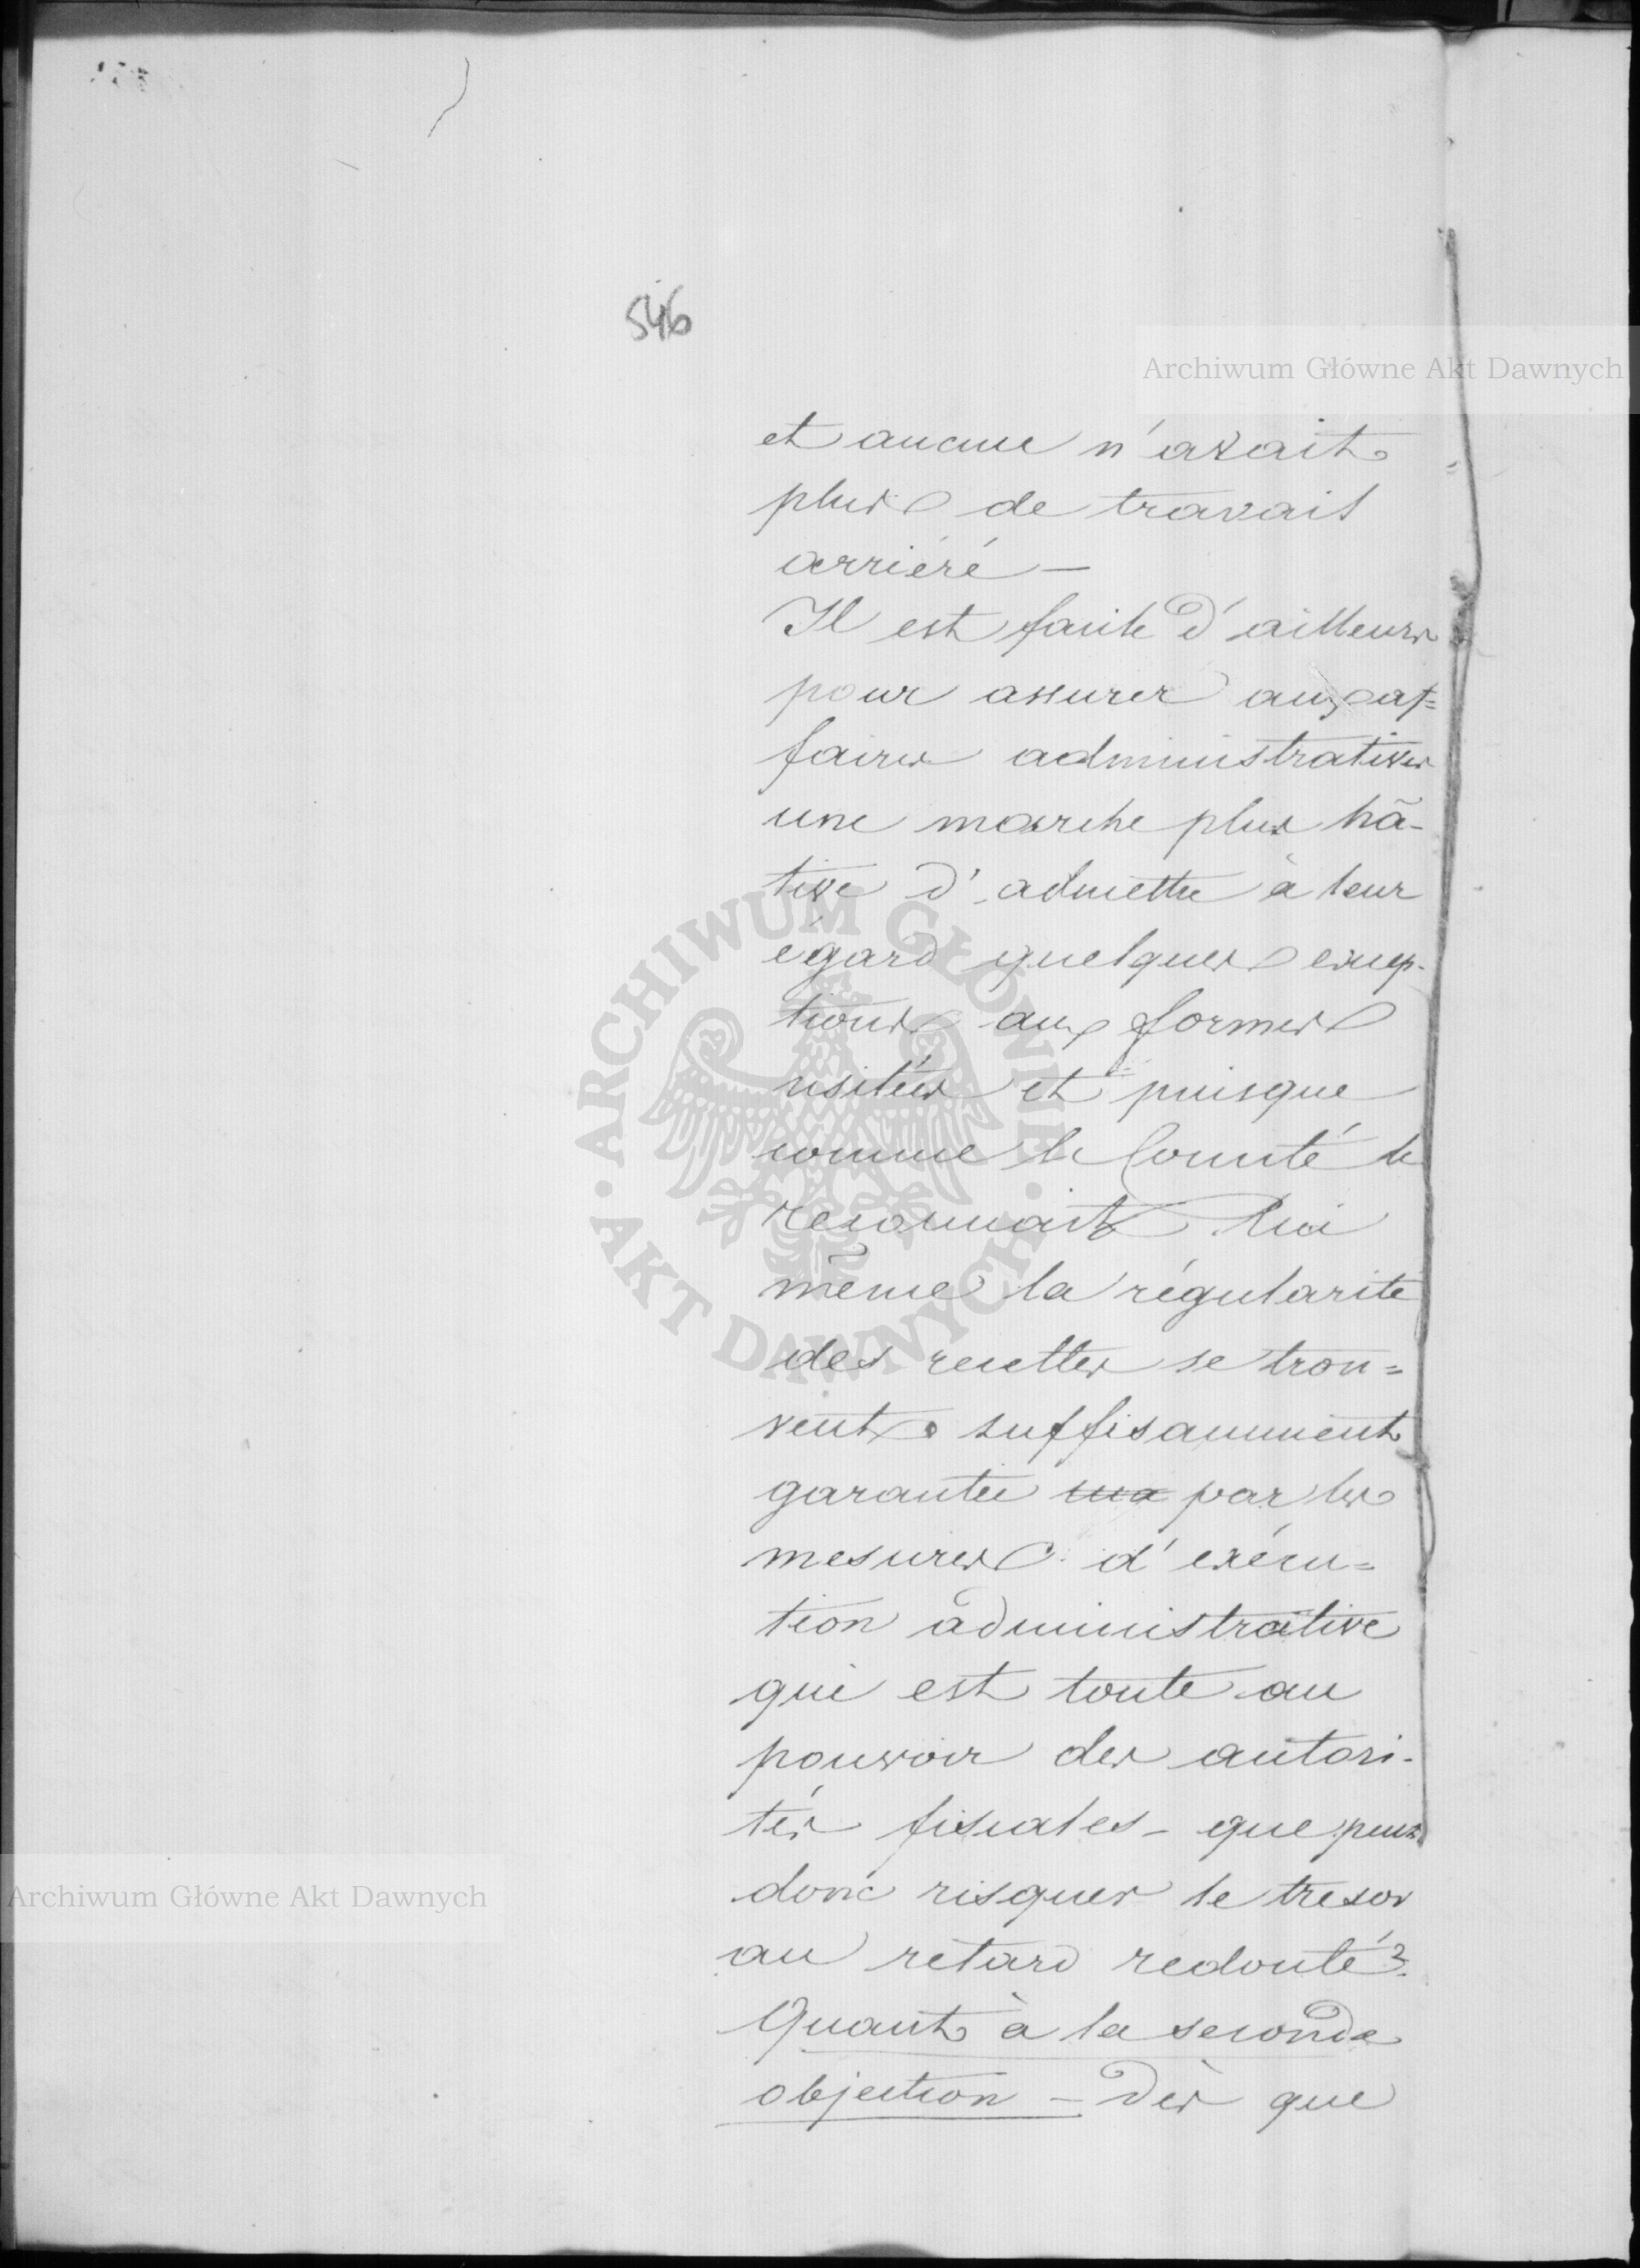 546
Archiwum Główne Akt Dawnych
et aucune n'avait
plus de travail
arriéré —
Il est facile d'ailleurs
pour assurer aux af=
faires administratives
une marche plus hâ-
tive d'admettre à leur
égard quelques excep-
tions aux formes
usitées et puisque
comme le Comité le
reconnait lui
même la régularité
des recettes se trou=
vent suffisamment
garantie par les
mesures d'exécu=
tion administrative
qui est toute au
pouvoir des autori-
tés fiscales - que peut
donc risquer le tresor
au retard redouté?
Quant à la seconde
objection - Dès que
Archiwum Główne Akt Dawnych
ARCHIWUM GŁÓWNE · AKT DAWNYCH ·